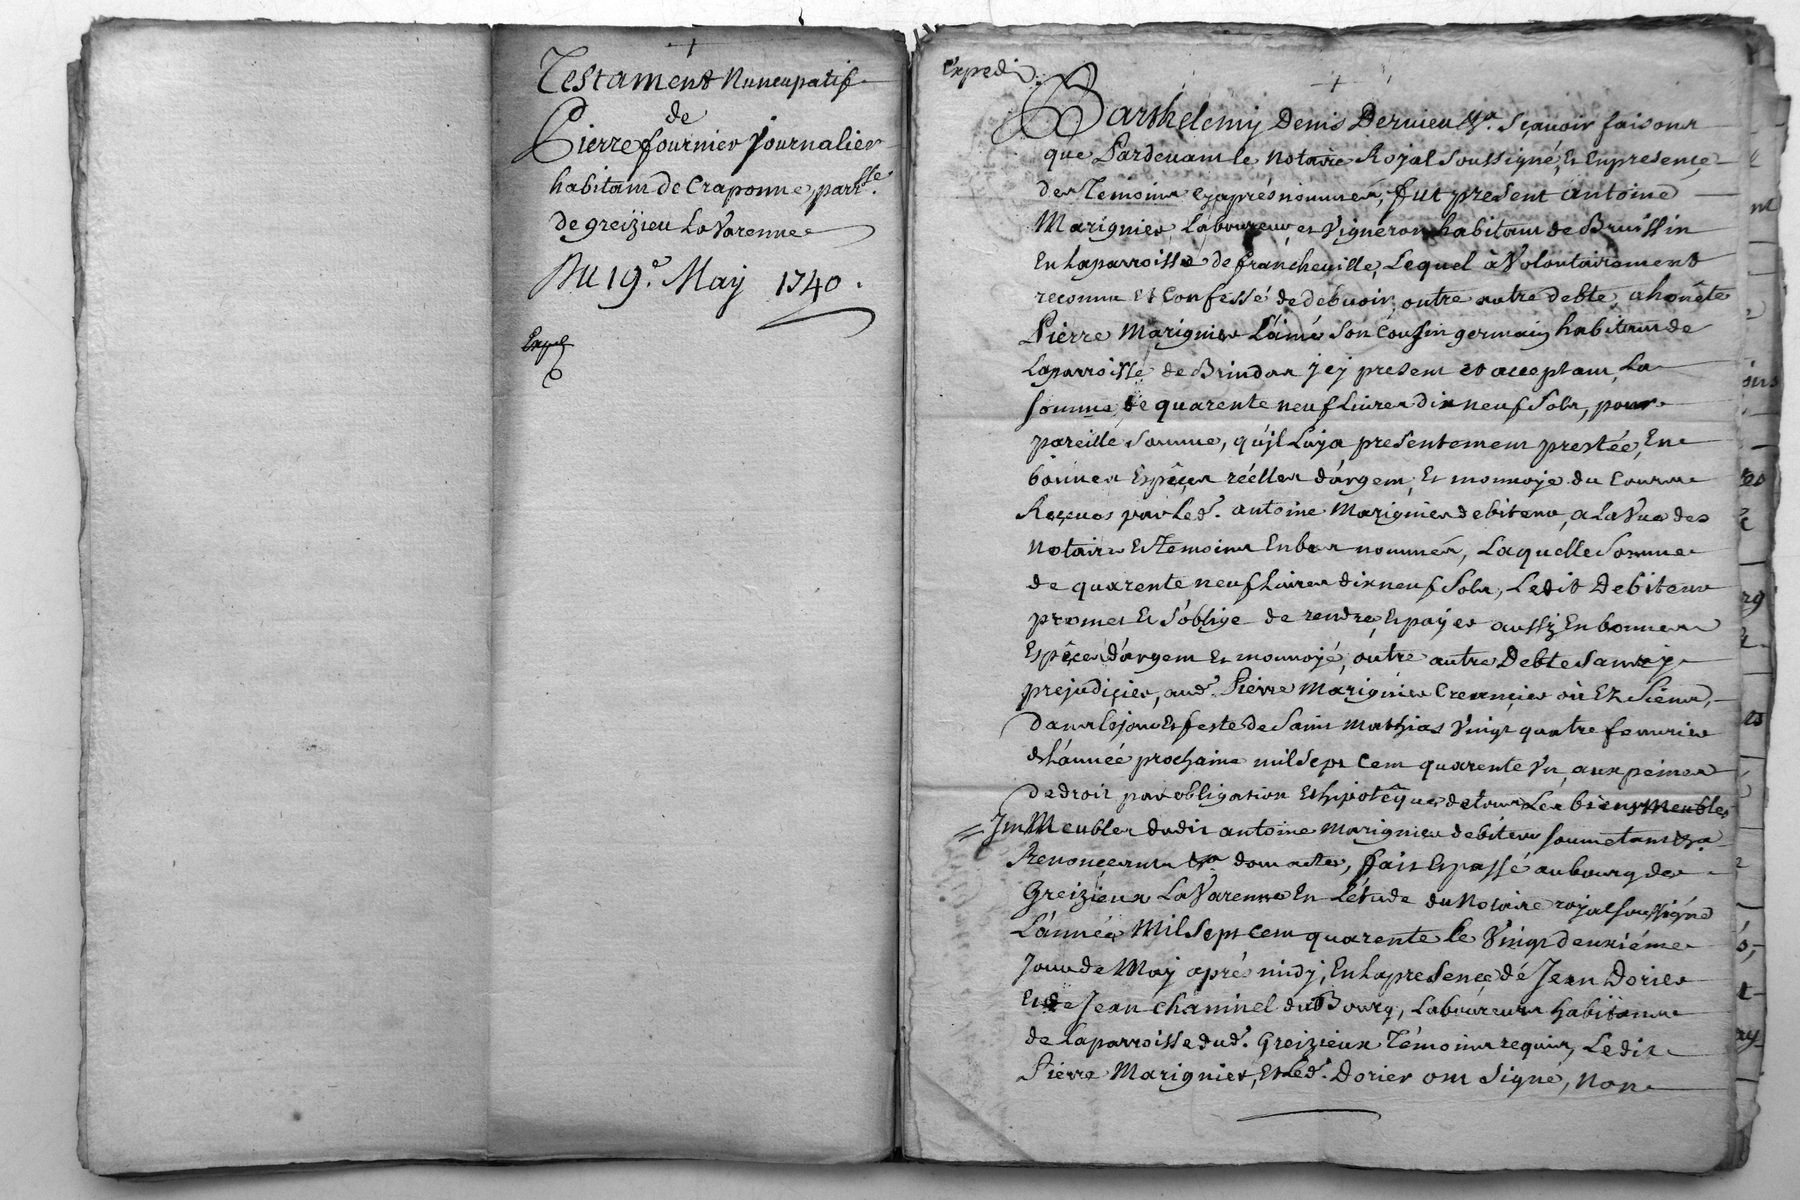 Testament Nuncupatif
de
Pierre fournier Journalier
habitant de Craponne, parr.sse
de greizieu La Varenne
Du 19.e May 1740.
Exped
Expedié
Barthelemy Denis Dervieu &a. Sçavoir faisons
que Pardevant le Notaire Royal soussigné, et En presence
des Temoins cy aprés nommés, fut present Antoine
Marignier Laboureur et Vigneron habitant de Bruissin
En La parroisse de francheville, Lequel à Volontairement
reconnu et Confessé de debvoir, outre autre debte, a honête
Pierre Marignier L'ainé Son Cousin germain habitant de
La parroisse de Brindas jcy present et acceptant, La
somme de quarente neuf Livres dix neuf Sols, pour
pareille Somme, qu'jl Luy a presentement prestée, En
bonnes Espêces réélles d'argent, et monnoye du Cours
Reçues par Led. antoine Marignier debiteur, a La Vue des
Notaire Et Temoins En bas nommés, Laquelle Somme
de quarente neuf Livres dix neuf Sols, Ledit Debiteur
promet Et S'oblige de rendre, Et payer aussy En bonnes
Espêces d'argent Et monnoyé, outre autre Debte Sans y
prejudicier, aud. Pierre Marignier Creancier où Ez Siens,
dans Le jour Et feste de Saint Mathias Vingt quatre fevrier
de L'année prochaine mil Sept Cent quarente Un, aux peines
de droit par obligation Et hipotêque de tous Les biens Meubles
Im Meubles dudit antoine Marignier debiteur soumetans &a
Renonçeans &a dont acte, fait Et passé au bourg de
Greizieux La Varenne En L'étude du Notaire royal soussigné
L'année Mil Sept Cent quarente le Vingt deuxiéme
Jour de May aprés midy, En La presence dé Jean Dorier
Et de Jean Chaminel du Bourg, Laboureurs habitans
de La parroisse dud. Greizieux Témoins requis, Ledit
Pierre Marignier, Et Led. Dorier ont Signé, non